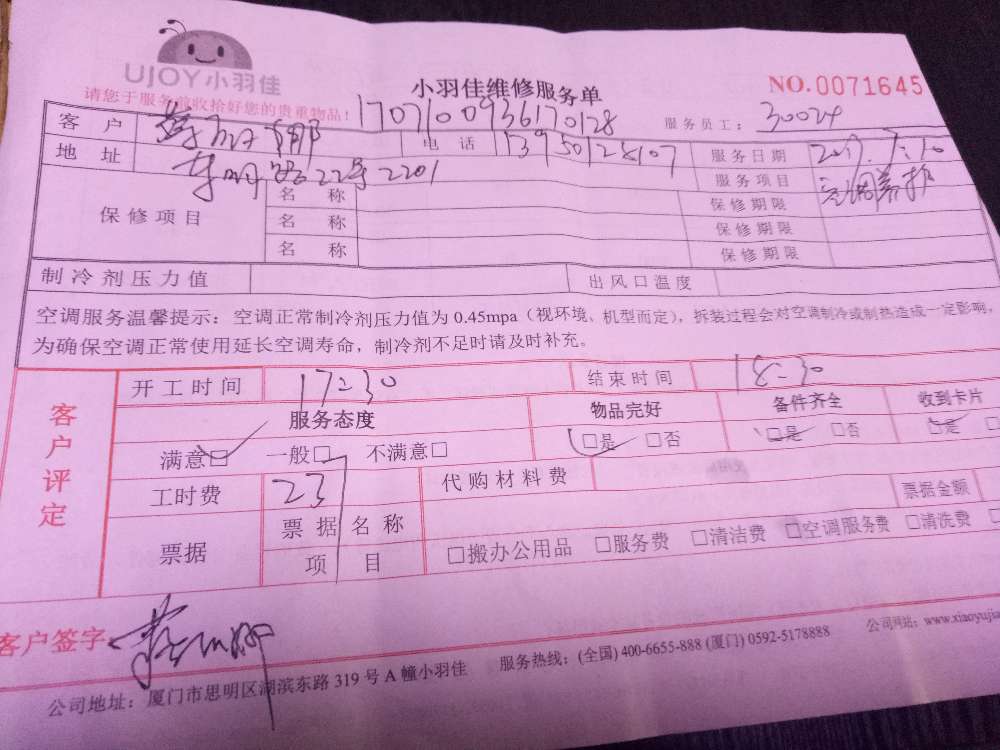 UJOY小羽佳
小羽佳维修服务单
NO.0071645
请您于服务前收拾好您的贵重物品!
1707100936170128
服务员工: 30024
客户
电话 13950128107
服务日期 2017.7.10
地址 22号2201
服务项目 空调养护
保修项目
名称 保修期限
名称 保修期限
名称 保修期限
制冷剂压力值 出风口温度
空调服务温馨提示:空调正常制冷剂压力值为 0.45mpa(视环境、机型而定),拆装过程会对空调制冷或制热造成一定影响,
为确保空调正常使用延长空调寿命,制冷剂不足时请及时补充。
客户评定
开工时间 17:30 结束时间 18:30
服务态度 物品完好 备件齐全 收到卡片
满意□ 一般□ 不满意□ □是 □否 □是 □否 □是
工时费 237 代购材料费
票据 票据名称 票据金额
项目 □搬办公用品 □服务费 □清洁费 □空调服务费 □清洗费
客户签字:
公司地址:厦门市思明区湖滨东路 319 号 A 幢小羽佳 服务热线:(全国) 400-6655-888 (厦门) 0592-5178888 公司网站:www.xiaoyujia